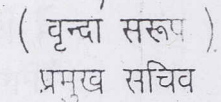 ( वृन्दा सरूप )
प्रमुख सचिव